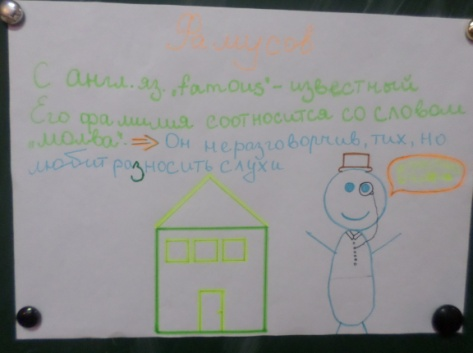 Фамусов
С англ.яз. „famous"- известный
Его фамилия соотносится со словом
„молва". => Он неразговорчив, тих, но
любит разносить слухи